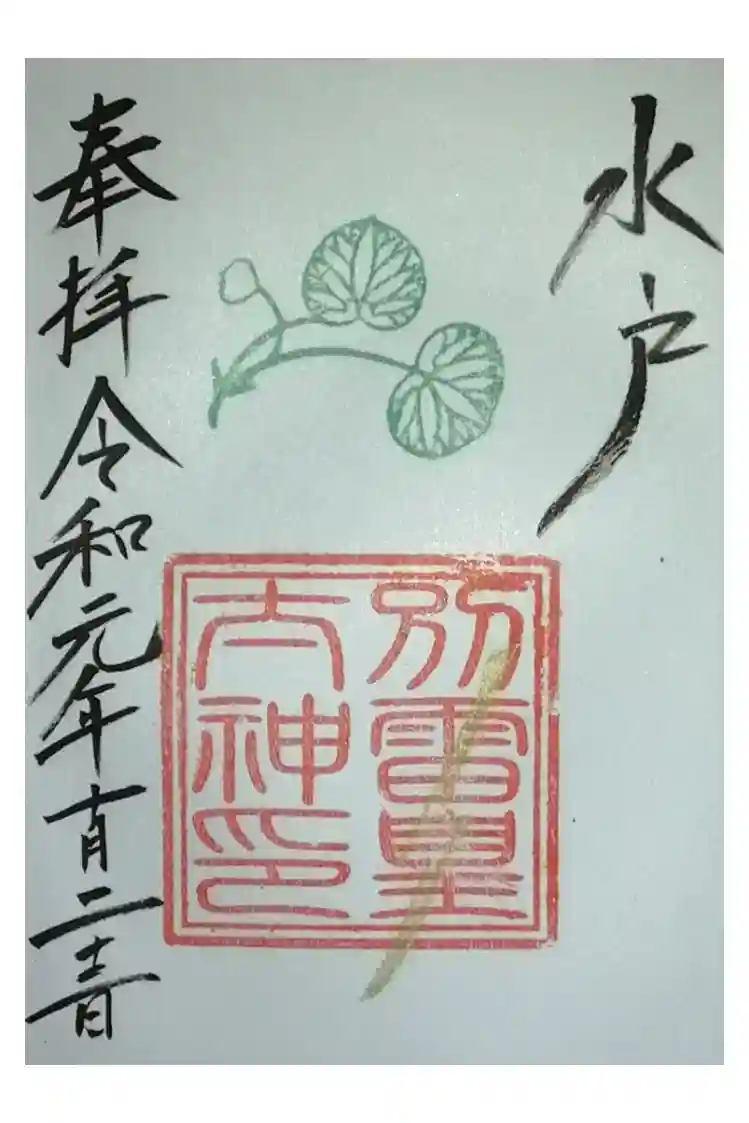 水戸
別雷皇
大神印
奉拝 令和元年十月二十一日